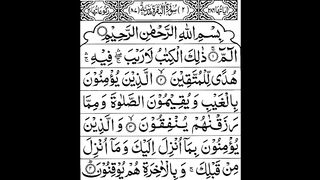 سُوْرَةُ الْبَقَرَةِ
بِسْمِ اللّٰهِ الرَّحْمٰنِ الرَّحِيْمِ
الٓمّٓ ذٰلِكَ الْكِتٰبُ لَا رَيْبَ فِيْهِ
هُدًى لِّلْمُتَّقِيْنَ الَّذِيْنَ يُؤْمِنُوْنَ
بِالْغَيْبِ وَيُقِيْمُوْنَ الصَّلٰوةَ وَمِمَّا
رَزَقْنٰهُمْ يُنْفِقُوْنَ وَالَّذِيْنَ
يُؤْمِنُوْنَ بِمَآ اُنْزِلَ اِلَيْكَ وَمَآ اُنْزِلَ
مِنْ قَبْلِكَ وَبِالْاٰخِرَةِ هُمْ يُوْقِنُوْنَ